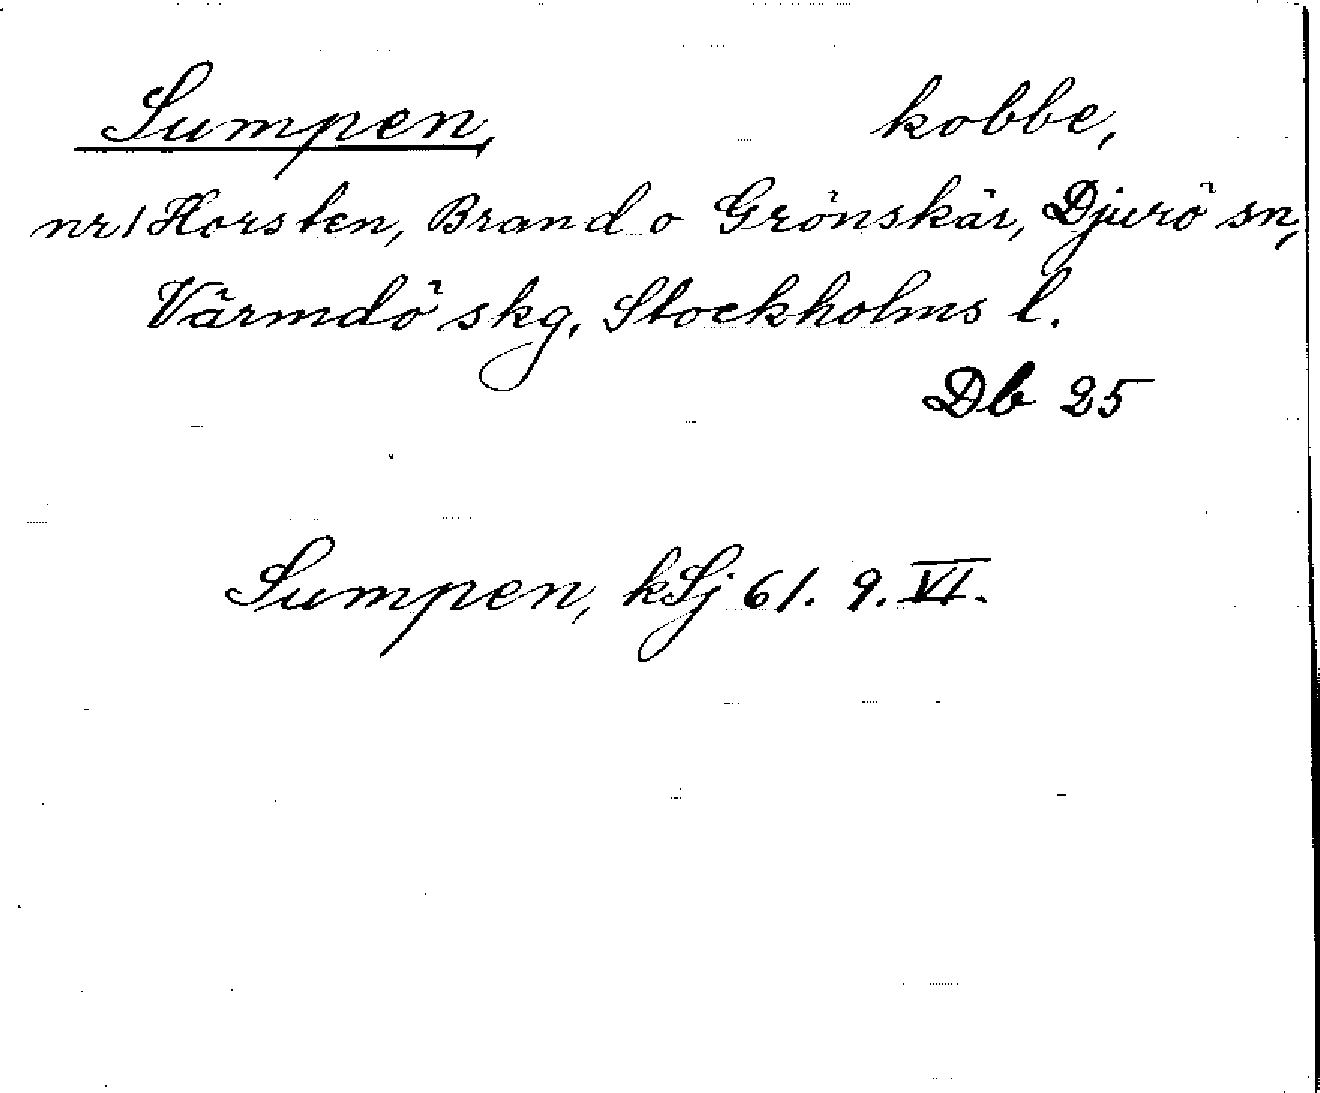 Sumpen, kobbe,
nr/Horsten, Brand o Grönskär, Djurö sn,
Värmdö skg, Stockholms l.
Db 25
Sumpen, kSj 61. 9. VI.